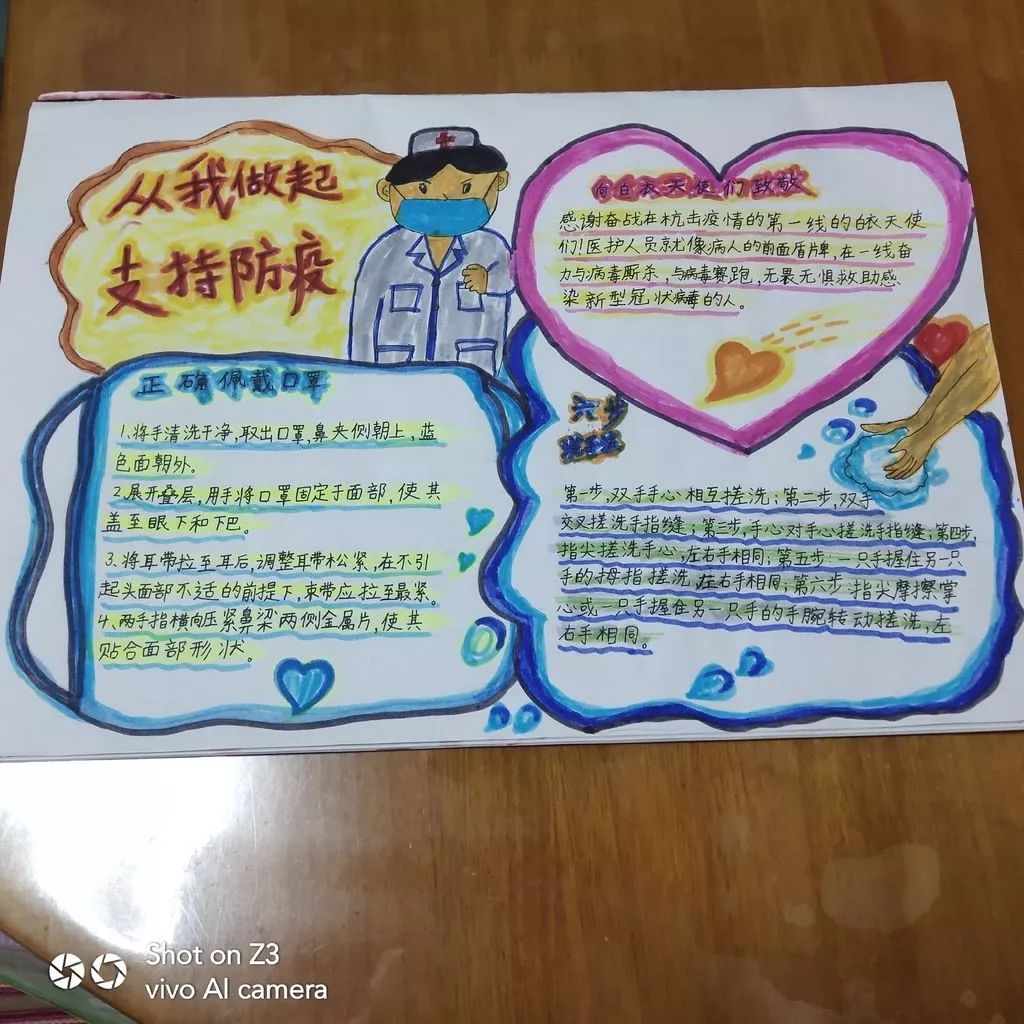 从我做起
支持防疫
向白衣天使们致敬
感谢奋战在杭击疫情的第一线的白衣天使
们!医护人员就像病人的前面盾牌,在一线奋
力与病毒厮杀,与病毒赛跑,无畏无惧救助感
染新型冠状病毒的人。
正确佩戴口罩
1、将手清洗干净,取出口罩,鼻夹侧朝上,蓝
色面朝外。
2、展开叠层,用手将口罩固定于面部,使其
盖至眼下和下巴。
3、将耳带拉至耳后,调整耳带松紧,在不引
起头面部不适的前提下,束带应拉至最紧。
4、两手指横向压紧鼻梁两侧金属片,使其
贴合面部形状。
六步
洗手法
第一步,双手手心相互搓洗;第二步,双手
交叉搓洗手指缝;第三步,手心对手心搓洗手指缝;第四步,
指尖搓洗手心,左右手相同;第五步:一只手握住另一只
手的拇指搓洗,左右手相同;第六步指尖摩擦掌
心或一只手握住另一只手的手腕转动搓洗,左
右手相同。
Shot on Z3
vivo AI camera